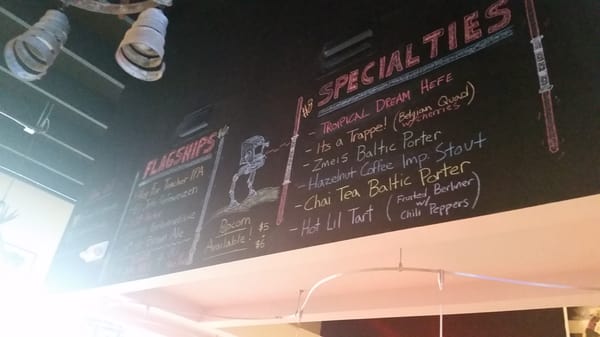 FLAGSHIPS
IPA
Ale
Popcorn
Available!
$5
$6
SPECIALTIES
- Tropical Dream Hefe
- Its a Trappe! (Belgian Quad w/cherries)
- Zmeis Baltic Porter
- Hazelnut Coffee Imp. Stout
- Chai Tea Baltic Porter
- Hot Lil Tart (Fruited Berliner w/ Chili Peppers)